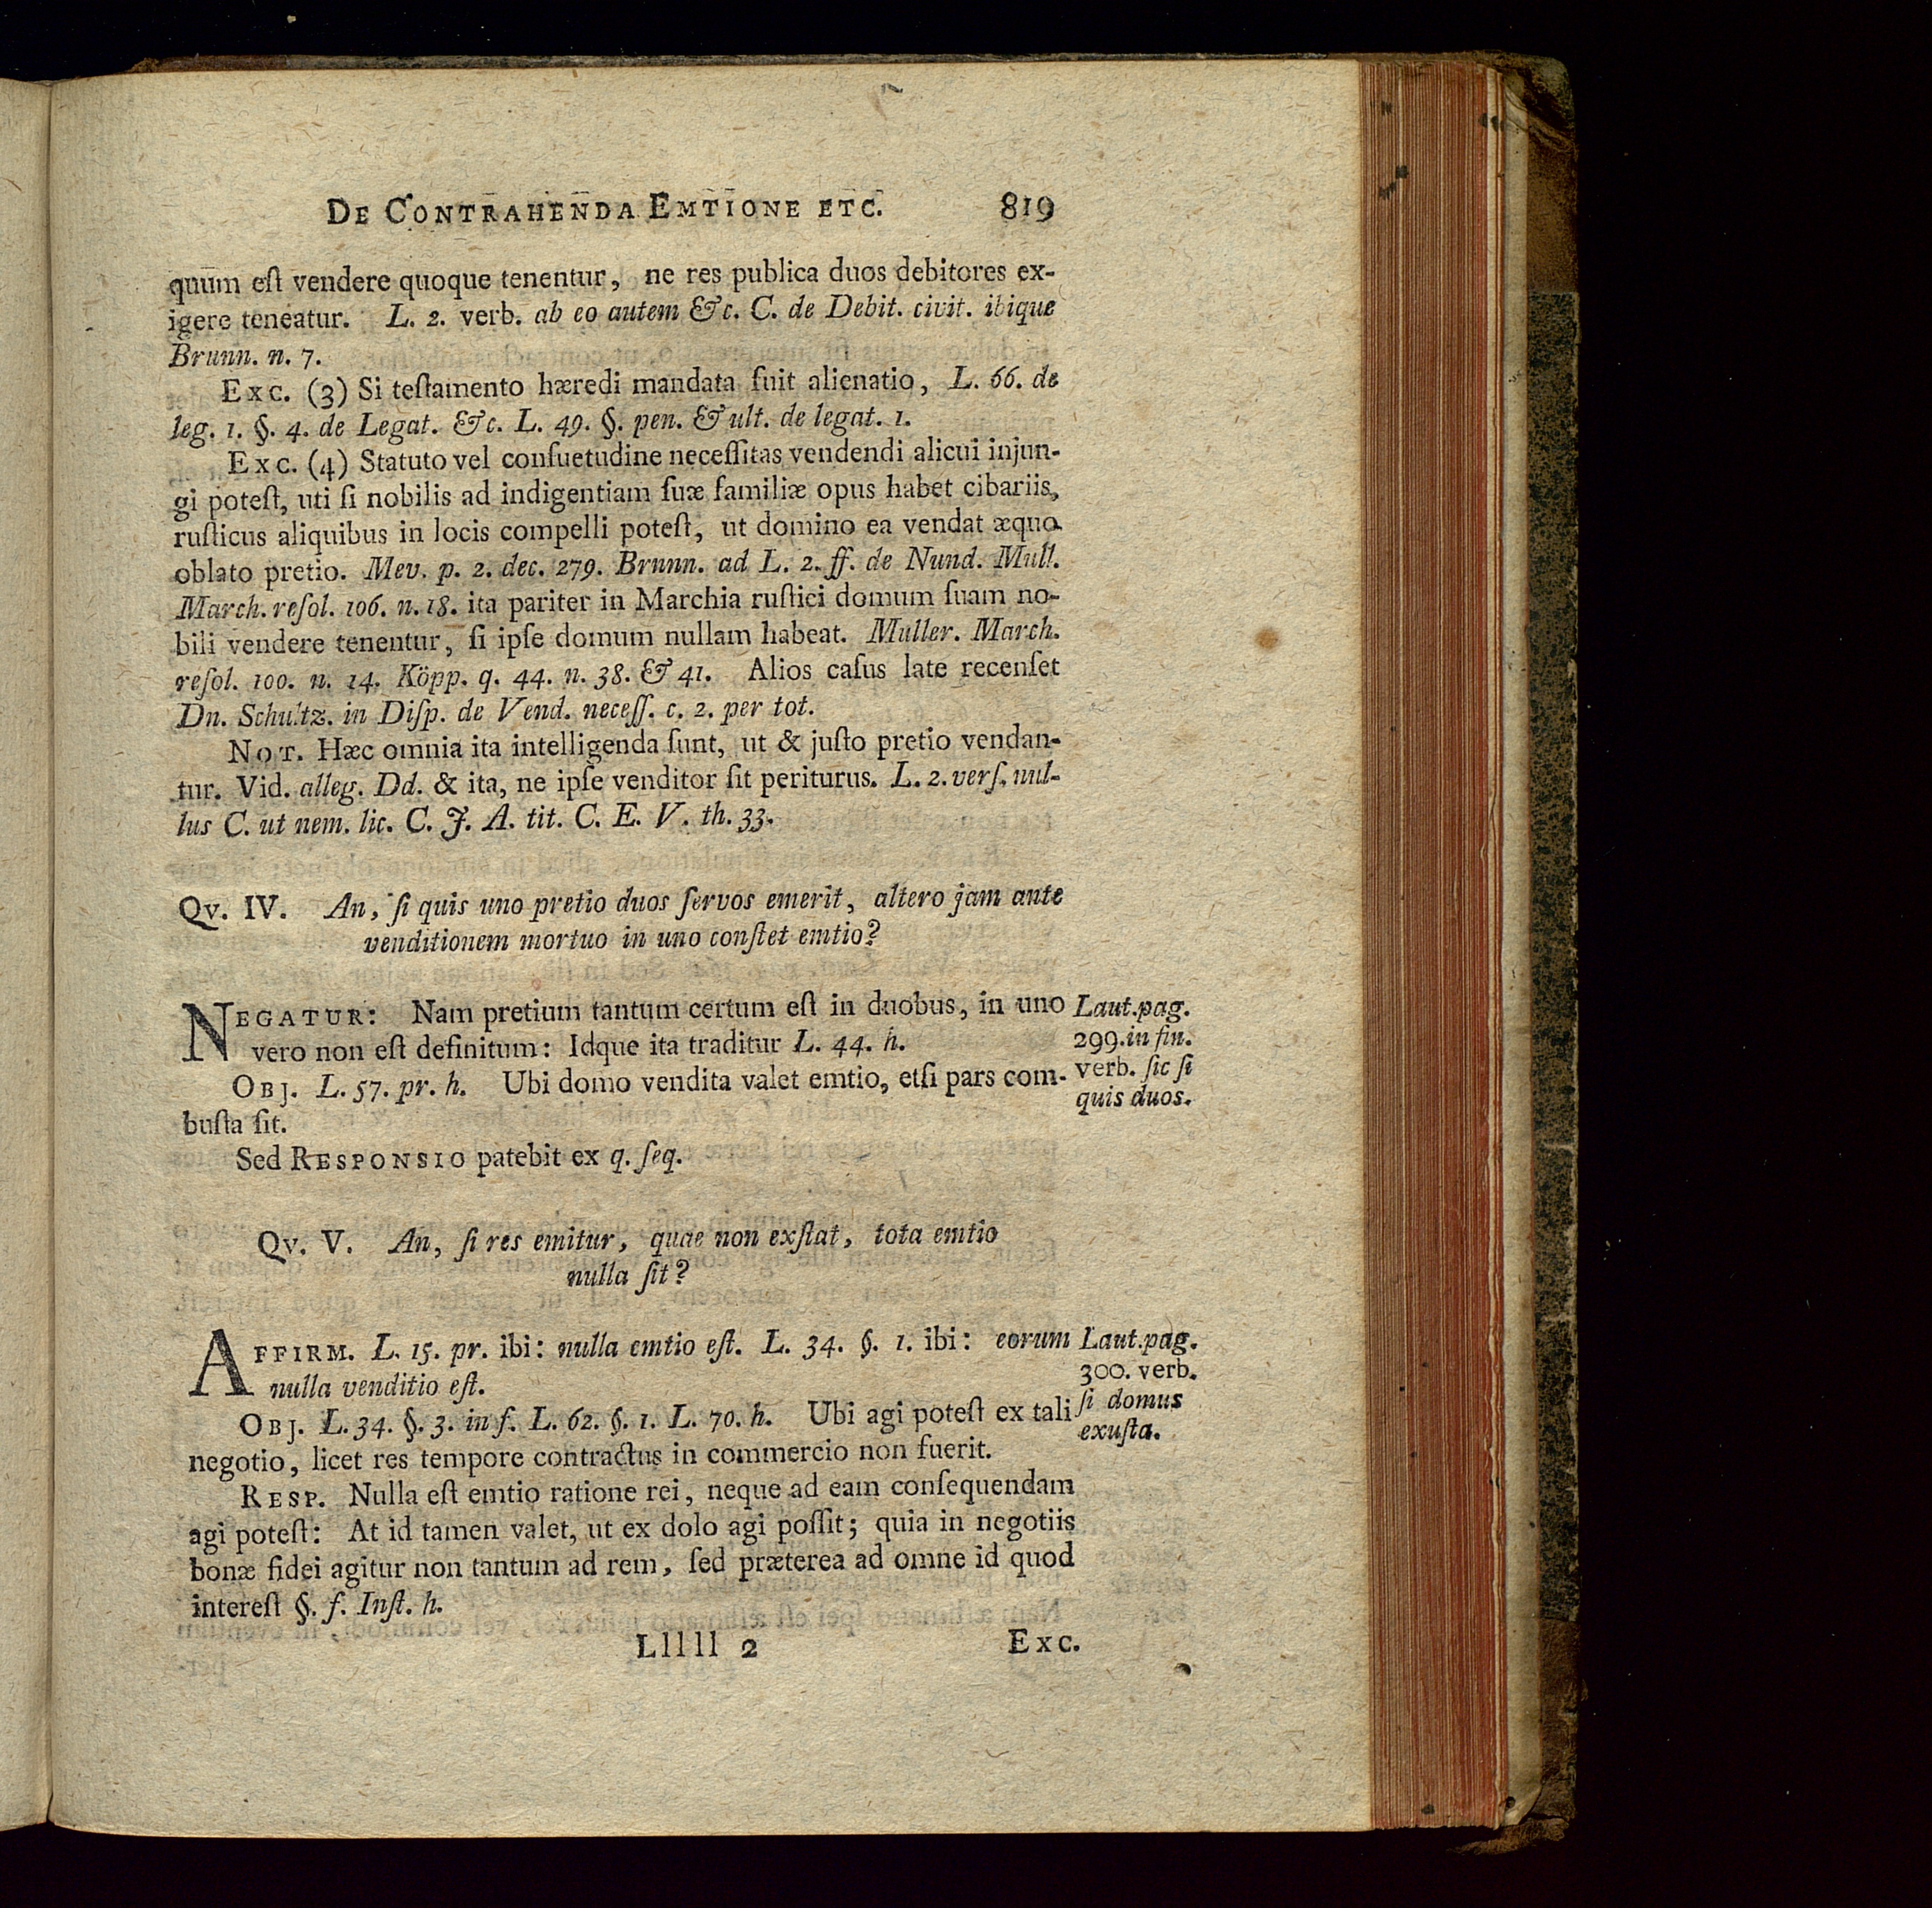 DE CONTRAHENDA EMTIONE ETC. 819
quum eſt vendere quoque tenentur, ne res publica duos debitores ex-
igere teneatur. L. 2. verb. ab eo autem &c. C. de Debit. civit. ibique
Brunn. n. 7.
Exc. (3) Si teſtamento hæredi mandata fuit alienatio, L. 66. de
leg. 1. §. 4. de Legat. &c. L. 49. §. pen. & ult. de legat. 1.
Exc. (4) Statuto vel conſuetudine neceſſitas vendendi alicui injun-
gi poteſt, uti ſi nobilis ad indigentiam ſuæ familiæ opus habet cibariis,
ruſticus aliquibus in locis compelli poteſt, ut domino ea vendat æquo
oblato pretio. Mev. p. 2. dec. 279. Brunn. ad L. 2. ff. de Nund. Mull.
March. reſol. 106. n. 18. ita pariter in Marchia ruſtici domum ſuam no-
bili vendere tenentur, ſi ipſe domum nullam habeat. Muller. March.
reſol. 100. n. 14. Köpp. q. 44. n. 38. & 41. Alios caſus late recenſet
Dn. Schultz. in Diſp. de Vend. neceſſ. c. 2. per tot.
NOT. Hæc omnia ita intelligenda ſunt, ut & juſto pretio vendan-
tur. Vid. alleg. Dd. & ita, ne ipſe venditor ſit periturus. L. 2. verſ. nul-
lus C. ut nem. lic. C. J. A. tit. C. E. V. th. 33.
Qv. IV. An, ſi quis uno pretio duos ſervos emerit, altero jam ante
venditionem mortuo in uno conſtet emtio?
NEGATUR: Nam pretium tantum certum eſt in duobus, in uno
vero non eſt definitum: Idque ita traditur L. 44. h.
OBJ. L. 57. pr. h. Ubi domo vendita valet emtio, etſi pars com-
buſta ſit.
Sed RESPONSIO patebit ex q. ſeq.
Laut. pag.
299. in fin.
verb. ſic ſi
quis duos.
Qv. V. An, ſi res emitur, quae non exſtat, tota emtio
nulla ſit?
AFFIRM. L. 15. pr. ibi: nulla emtio eſt. L. 34. §. 1. ibi: eorum
nulla venditio eſt.
OBJ. L. 34. §. 3. in f. L. 62. §. 1. L. 70. h. Ubi agi poteſt ex tali
negotio, licet res tempore contractus in commercio non fuerit.
RESP. Nulla eſt emtio ratione rei, neque ad eam conſequendam
agi poteſt: At id tamen valet, ut ex dolo agi poſſit; quia in negotiis
bonæ fidei agitur non tantum ad rem, ſed præterea ad omne id quod
intereſt §. f. Inſt. h.
Laut. pag.
300. verb.
ſi domus
exuſta.
Lllll 2 Exc.